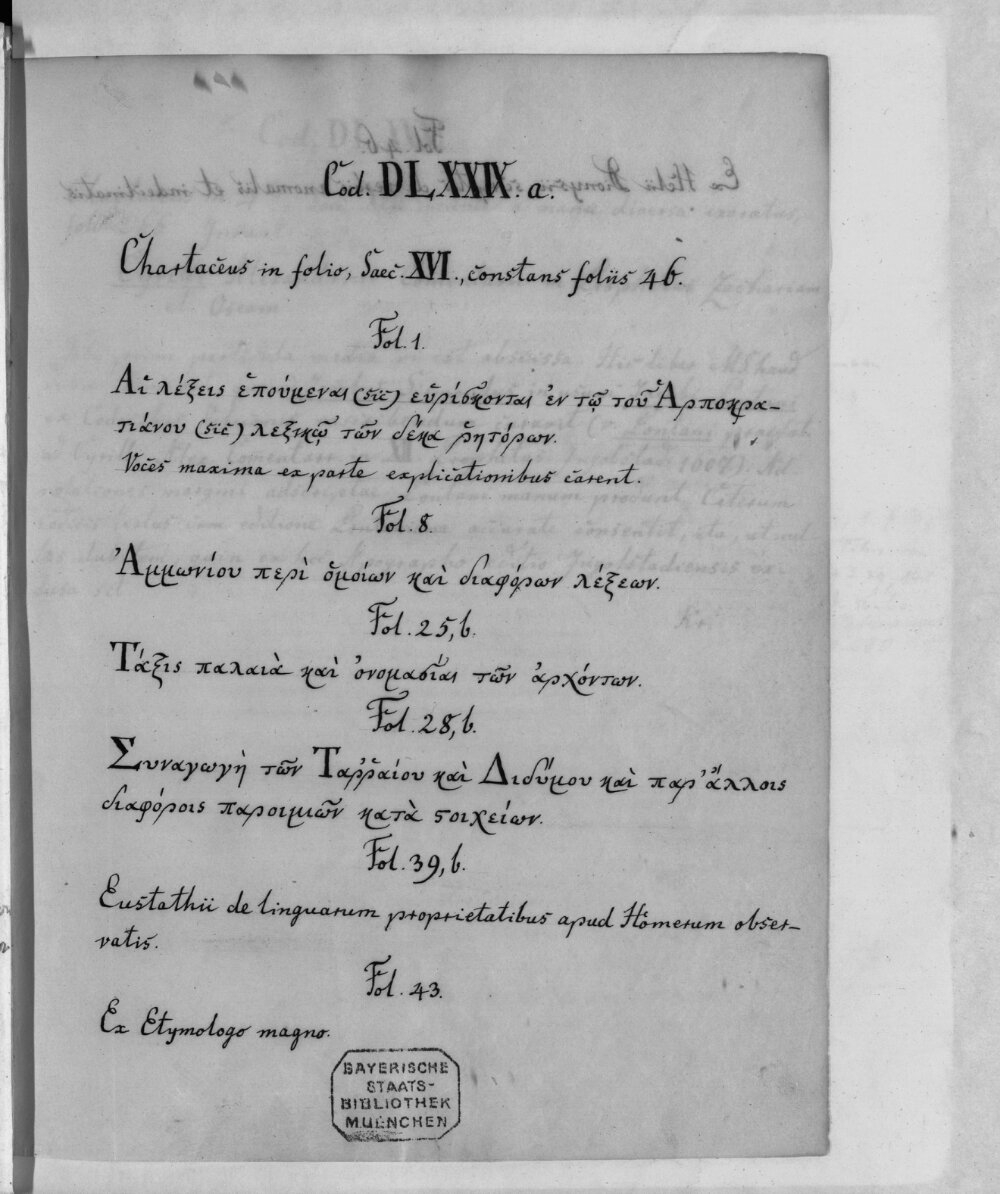 Cod. DLXXIX. a.
Chartaceus in folio, Saec. XVI., constans foliis 46.
Fol. 1.
Αἱ λέξεις ἑπούμεναι (sic) εὑρίσκονται ἐν τῷ τοῦ Ἁρποκρα-
τιάνου (sic) λεξικῷ τῶν δέκα ῥητόρων.
Voces maxima ex parte explicationibus carent.
Fol. 8.
Ἀμμωνίου περὶ ὁμοίων καὶ διαφόρων λέξεων.
Fol. 25, b.
Τάξις παλαιὰ καὶ ὀνομασίαι τῶν ἀρχόντων.
Fol. 28, b.
Συναγωγὴ τῶν Ταῤῥαίου καὶ Διδύμου καὶ παρ' ἄλλοις
διαφόροις παροιμιῶν κατὰ στοιχείων.
Fol. 39, b.
Eustathii de linguarum proprietatibus apud Homerum obser-
vatis.
Fol. 43.
Ex Etymologo magno.
BAYERISCHE
STAATS-
BIBLIOTHEK
MUENCHEN